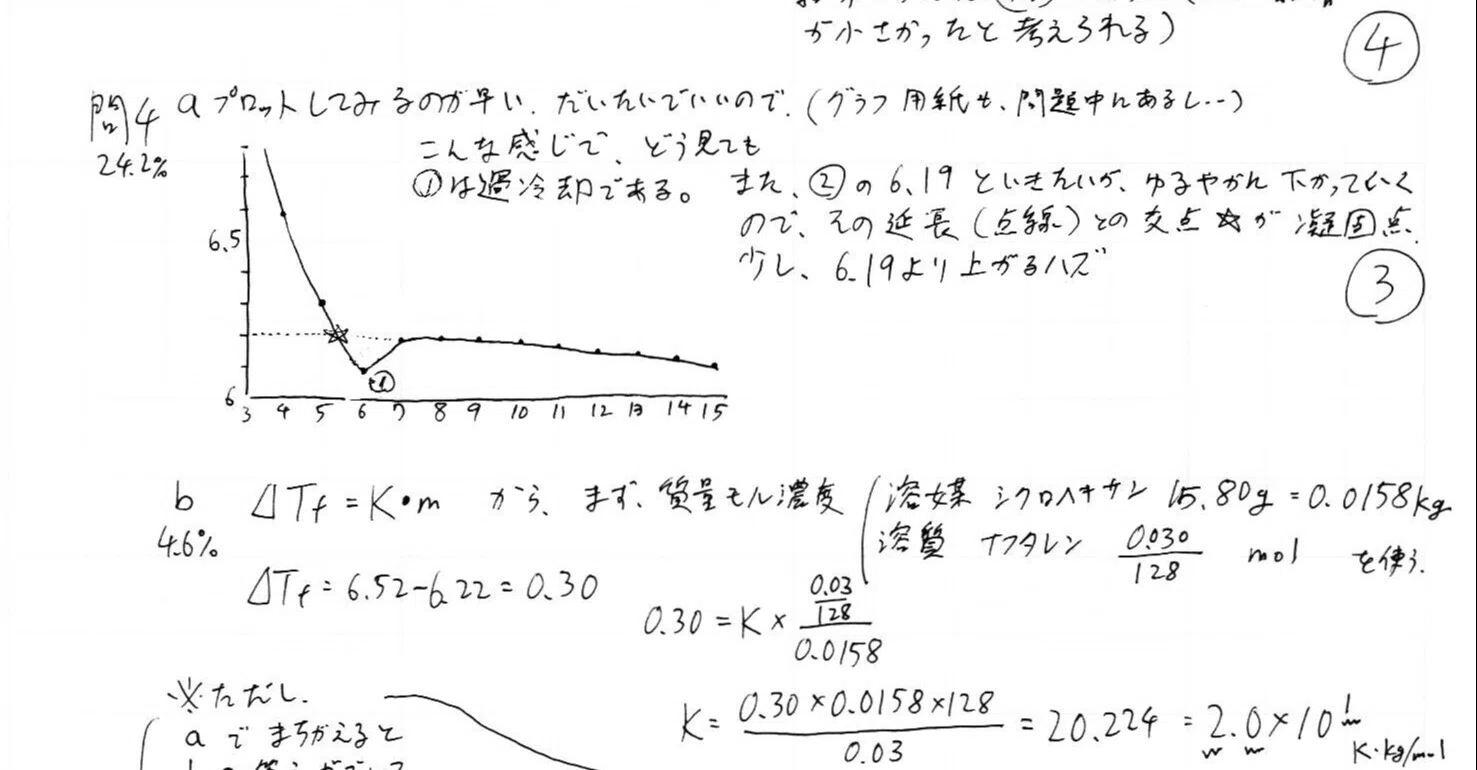 が小さかったと考えられる)
④
問4 aプロットしてみるのが早い、だいたいでいいので、(グラフ用紙も、問題中にあるし…)
24.2%
こんな感じで、どう見ても
①は過冷却である。また、②の6.19といきたいが、ゆるやかに下がっていく
ので、その延長(点線)との交点☆が凝固点
少し、6.19より上がるハズ
③
6.5
6
①
3 4 5 6 7 8 9 10 11 12 13 14 15
b ΔTf=K・m から、まず、質量モル濃度
4.6%
溶媒 シクロヘキサン 15.80g=0.0158kg
溶質 ナフタレン 0.030/128 mol を使う.
ΔTf=6.52-6.22=0.30
0.30=K×(0.03/128)/0.0158
K=0.30×0.0158×128/0.03=20.224=2.0×10^1 K・kg/mol
※ただし.
aでまちがえると